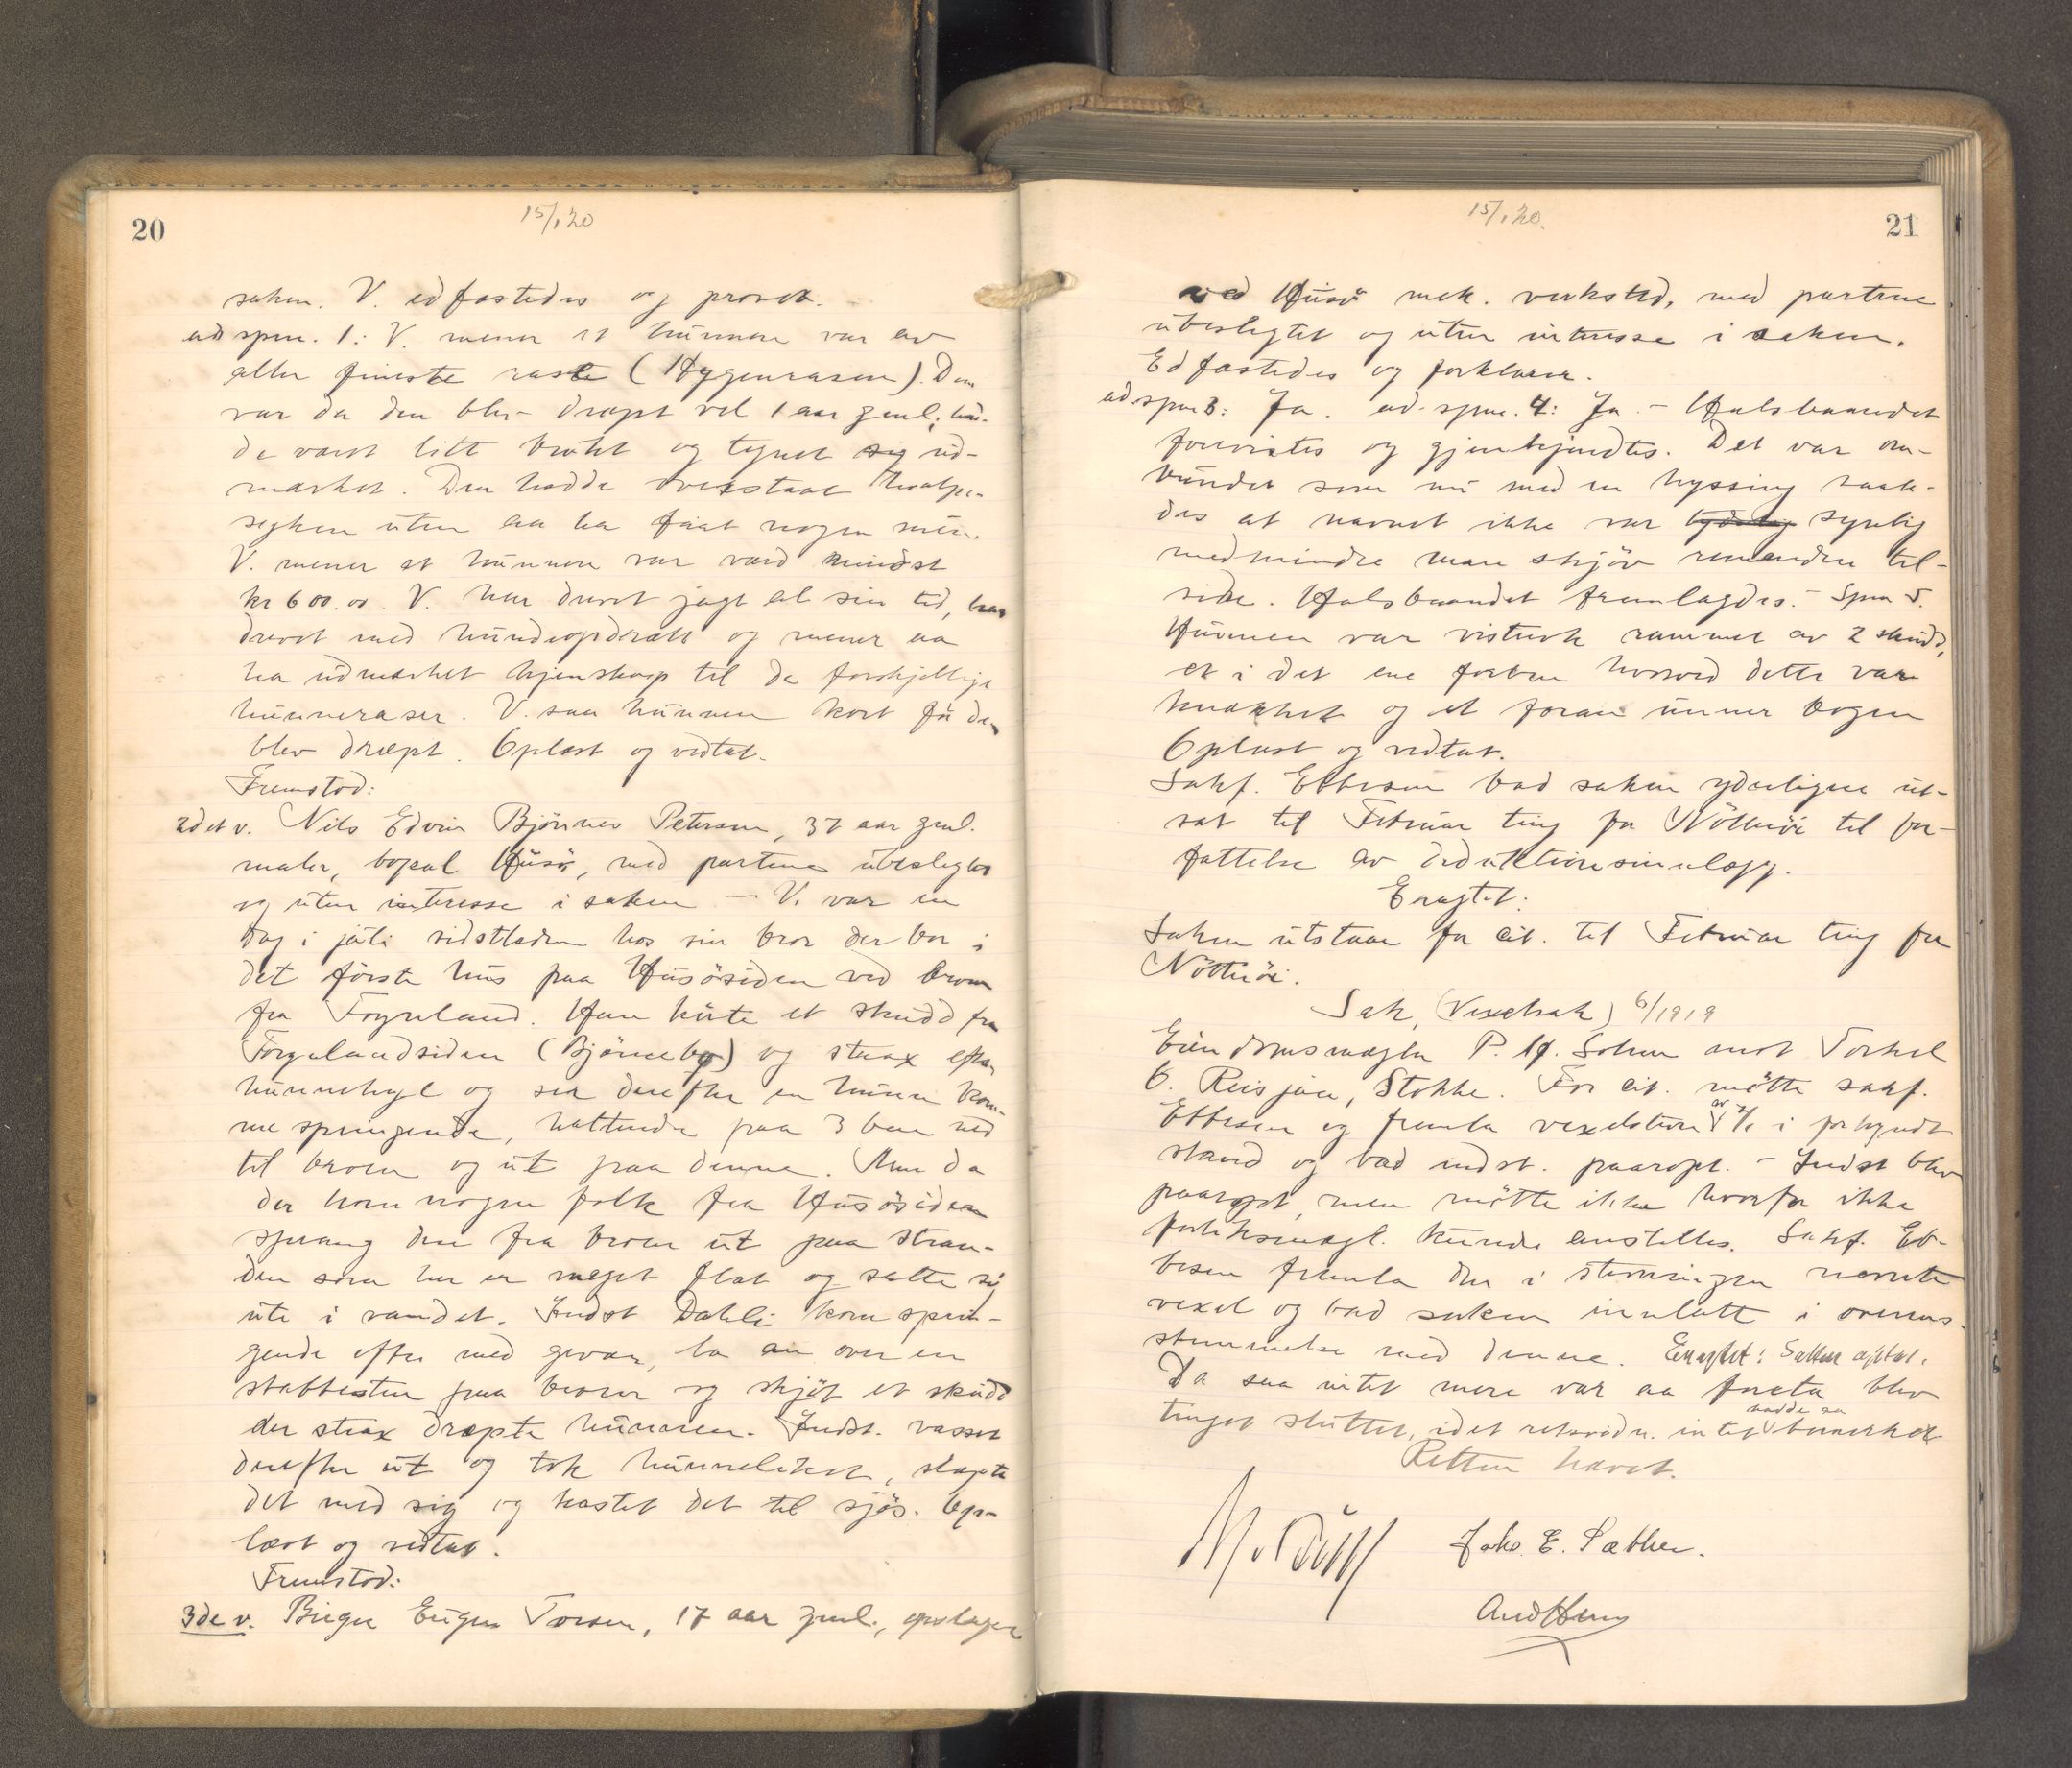 20
15/1 20
saken. V. edfæstedes og provet.
ad spm. 1: V. mener at hunnen var av
aller fineste rase (Hygenrasen). Den
var da den blev dræpt vel 1 aar gml., had-
de været litt brukt og tegnet sig ud-
mærket. Den hadde overstaat hvalpe-
syken uten aa ha faat nogen mén.
V. mener at hunnen var værd mindst
kr 600.00. V. har drevet jagt al sin tid, har
drevet med hundeopdræt og mener aa
ha udmærket kjenskap til de forskjellige
hunneraser. V. saa hunnen kort før den
blev dræpt. Oplæst og vedtat.
Fremstod:
2det v. Nils Edvin Bjønnes Petersen, 37 aar gml.
maler, bopæl Husø, med partene ubeslegtet
og uten interesse i saken – V. var en
dag i juli sidstleden hos sin bror der bor i
det første hus paa Husøsiden ved broen
fra Føynland. Han hørte et skudd fra
Føynlandsiden (Bjønnebo) og strax efter
hunnehyl og ser derefter en hunn kom-
me springende, haltende paa 3 ben ned
til broen og ut paa denne. Men da
der kom nogen folk fra Husøsiden
sprang den fra broen ut paa stran-
den som her er meget flat og satte sig
ute i vandet. Indst Dahli kom sprin-
gende efter med gevær, la an over en
stabbesten paa broen og skjøt et skudd
der strax dræpte hunnen. Indst. vasset
derefter ut og tok hunneliket, slæpte
det med sig og kastet det til sjøs. Op-
læst og vedtat.
Fremstod:
3de v. Birger Eugen Torsen, 17 aar gml.,
21
15/1 20.
ved Husø mek. verksted, med partene
ubeslegtet og uten interesse i saken.
Edfæstedes og forklarer.
ad spm 3: Ja. ad spm. 4: Ja. – Halsbaandet
forevistes og gjenkjendtes. Det var om-
vundet som nu med en hyssing saale-
des at navnet ikke var tydelig synlig
medmindre man skjøv remenden til-
side. Halsbaandet fremlagdes. – Spm 5.
Hunnen var visstnok rammet av 2 skudd,
et i det ene forben hvorved dette var
knækket og et foran unner bogen
Oplæst og vedtat.
Sakf. Ebbesen bad saken yderligere ut-
sat til Februar ting for Nøtterøi til for-
fattelse av deduktionsinnlægg.
Eragtet:
Saken utstaar for cit. til Februar ting for
Nøtterøi.
Sak, (Vexelsak) 6/1919
Eiendomsmægler P. H. Solum mot Torkel
O. Reisjaa, Stokke. For cit. møtte sakf.
Ebbesen og fremla vexelstevn. av 7/1 i forkyndt
stand og bad indst. paaropt. – Indst blev
paaropt, men møtte ikke hvorfor ikke
forliksmægl. kunde anstilles. Sakf. Eb-
besen fremla den i stevningen nævnte
vexel og bad saken innlatt i overens-
stemmelse med denne. Eragtet: Saken optat.
Da saa intet mere var aa foreta blev
tinget sluttet, idet retsvidn. intet hadde aa bemerke
Retten hævet.
Johs. E. Sæther.